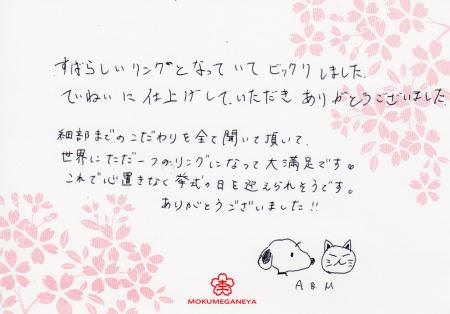 すばらしいリングとなっていてビックリしました。
ていねいに仕上げして、いただきありがとうございました
細部までのこだわりを全て聞いて頂いて、
世界にただ一つのリングになって大満足です。
これで心置きなく挙式の日を迎えられそうです。
ありがとうございました!!
A & M
MOKUMEGANEYA